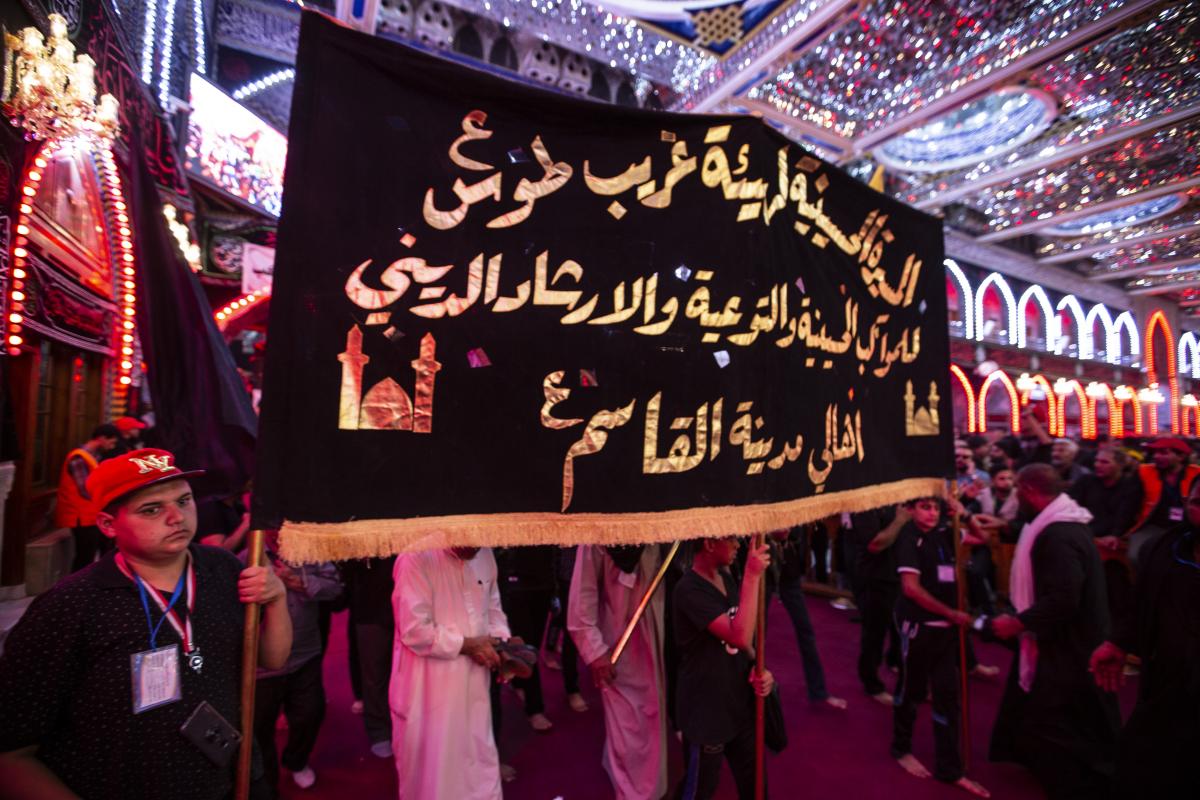 المسيرة الحسينية لهيئة غريب طوس ع
للمواكب الحسينية والتوعية والارشاد الديني
اهالي مدينة القاسم ع
NY